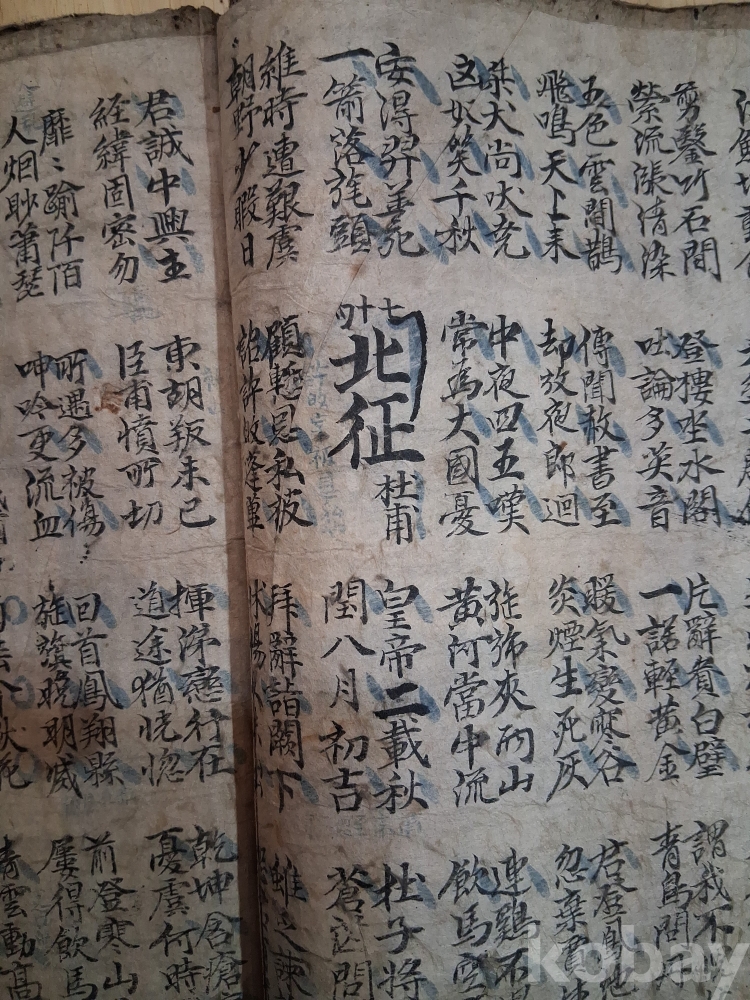 剪鑿竹石間
縈流漲清染
登樓坐水閣
吐論多英音
片辭貴白璧
一諾輕黃金
謂我不
青鳥明丹
五色雲間鵲
飛鳴天上来
傳聞赦書至
却放夜郎迴
暖氣變寒谷
炎煙生死灰
君登鳳池
忽棄賈生
桀犬尚吠尭
凶奴笑千秋
中夜四五嘆
常為大國憂
旌旆夾兩山
黃河當中流
連鷄不
飲馬空
安得羿善死
一箭落旄頭
七十四
北征
杜甫
皇帝二載秋
閏八月初吉
杜子將
蒼茫問
維時遭艱虞
朝野少暇日
顧慙恩私被
詔許皈蓬蓽
拜辭詣闕下
雖乏諫
君誠中興主
經緯固密勿
東胡叛未已
臣甫憤所切
揮涕戀行在
道途猶恍惚
乾坤含瘡
憂虞何時
靡〻踰阡陌
人烟眇蕭瑟
所遇多被傷
呻吟更流血
回首鳳翔縣
旌旗晚明滅
前登寒山
屢得飲馬
青雲動高
kobay